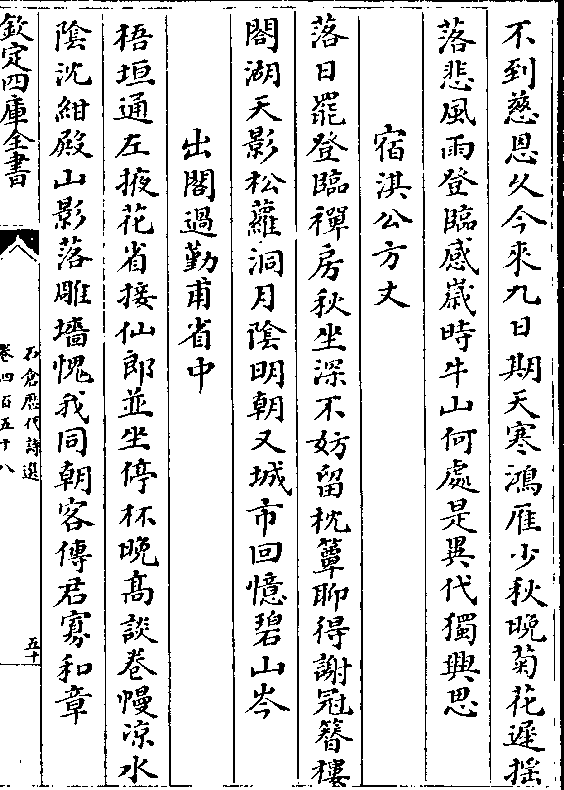 不到慈恩久今來九日期天寒鴻雁少秋晚菊花遲揺
落悲風雨登臨感嵗時牛山何處是異代獨興思
宿淇公方丈
落日罷登臨禪房秋坐深不妨留枕簟聊得謝冠簪樓
閣湖天影松蘿洞月陰明朝又城市回憶碧山岑
出閣過勤甫省中
梧垣通左掖花省接仙郎並坐停杯晚髙談巻幔凉水
陰沈紺殿山影落雕墻愧我同朝客傳君寡和章
欽定四庫全書
石倉歴代詩選
卷四百五十八
五十